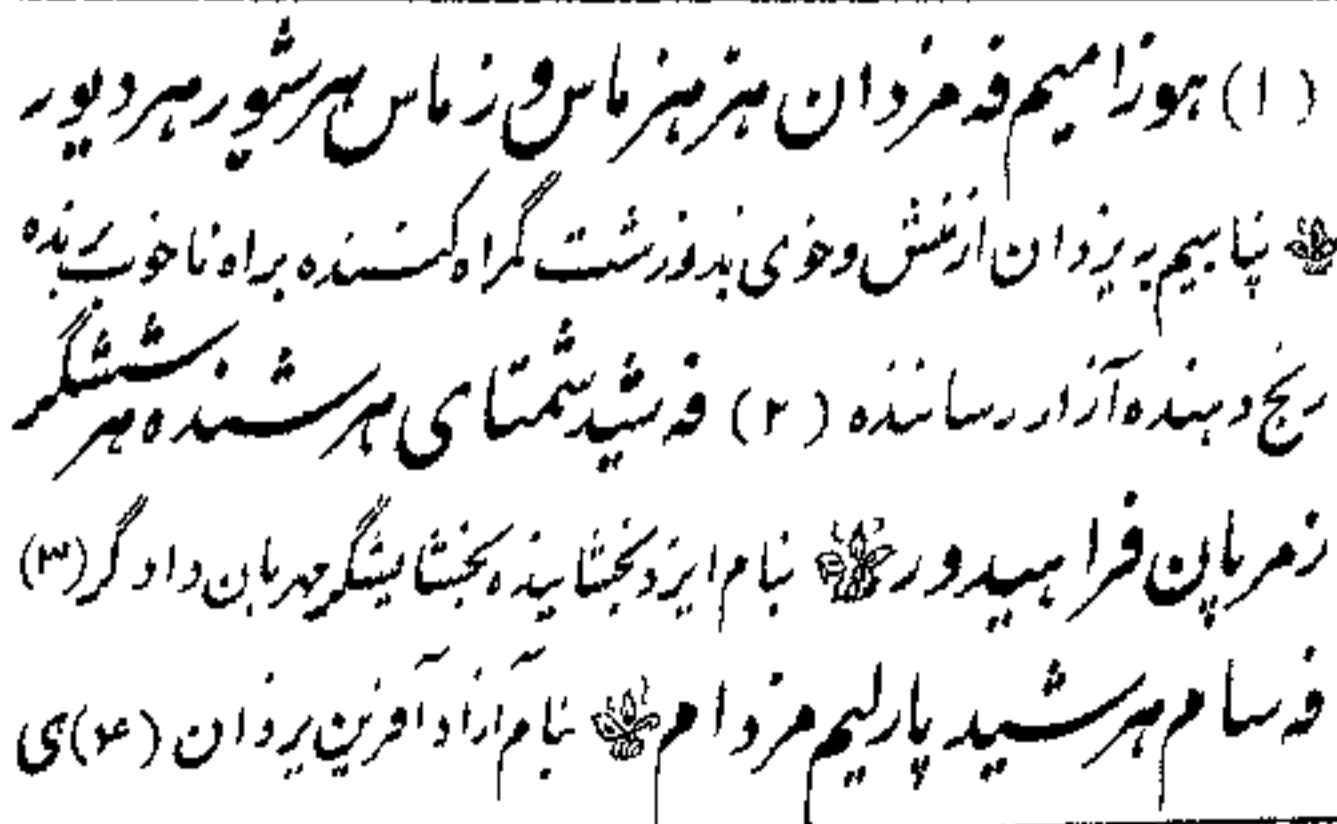 (۱) هوزامیم فه مزدان هزهزماس وزماس هرشیور هردیور
پناهیم به یزدان از منش و خوی بد و زشت گمراه کننده براه ناخوب برنده
رنج دهنده آزار رساننده (۲) فه شید شمتای هرشنده هرششگر
زمرپان فراهیدور بنام ایزد بخشاینده بخشایشگر مهربان دادگر (۳)
فه سام هرشید پارلیم مزدام بنام آزاد آفرین یزدان (۴) ی